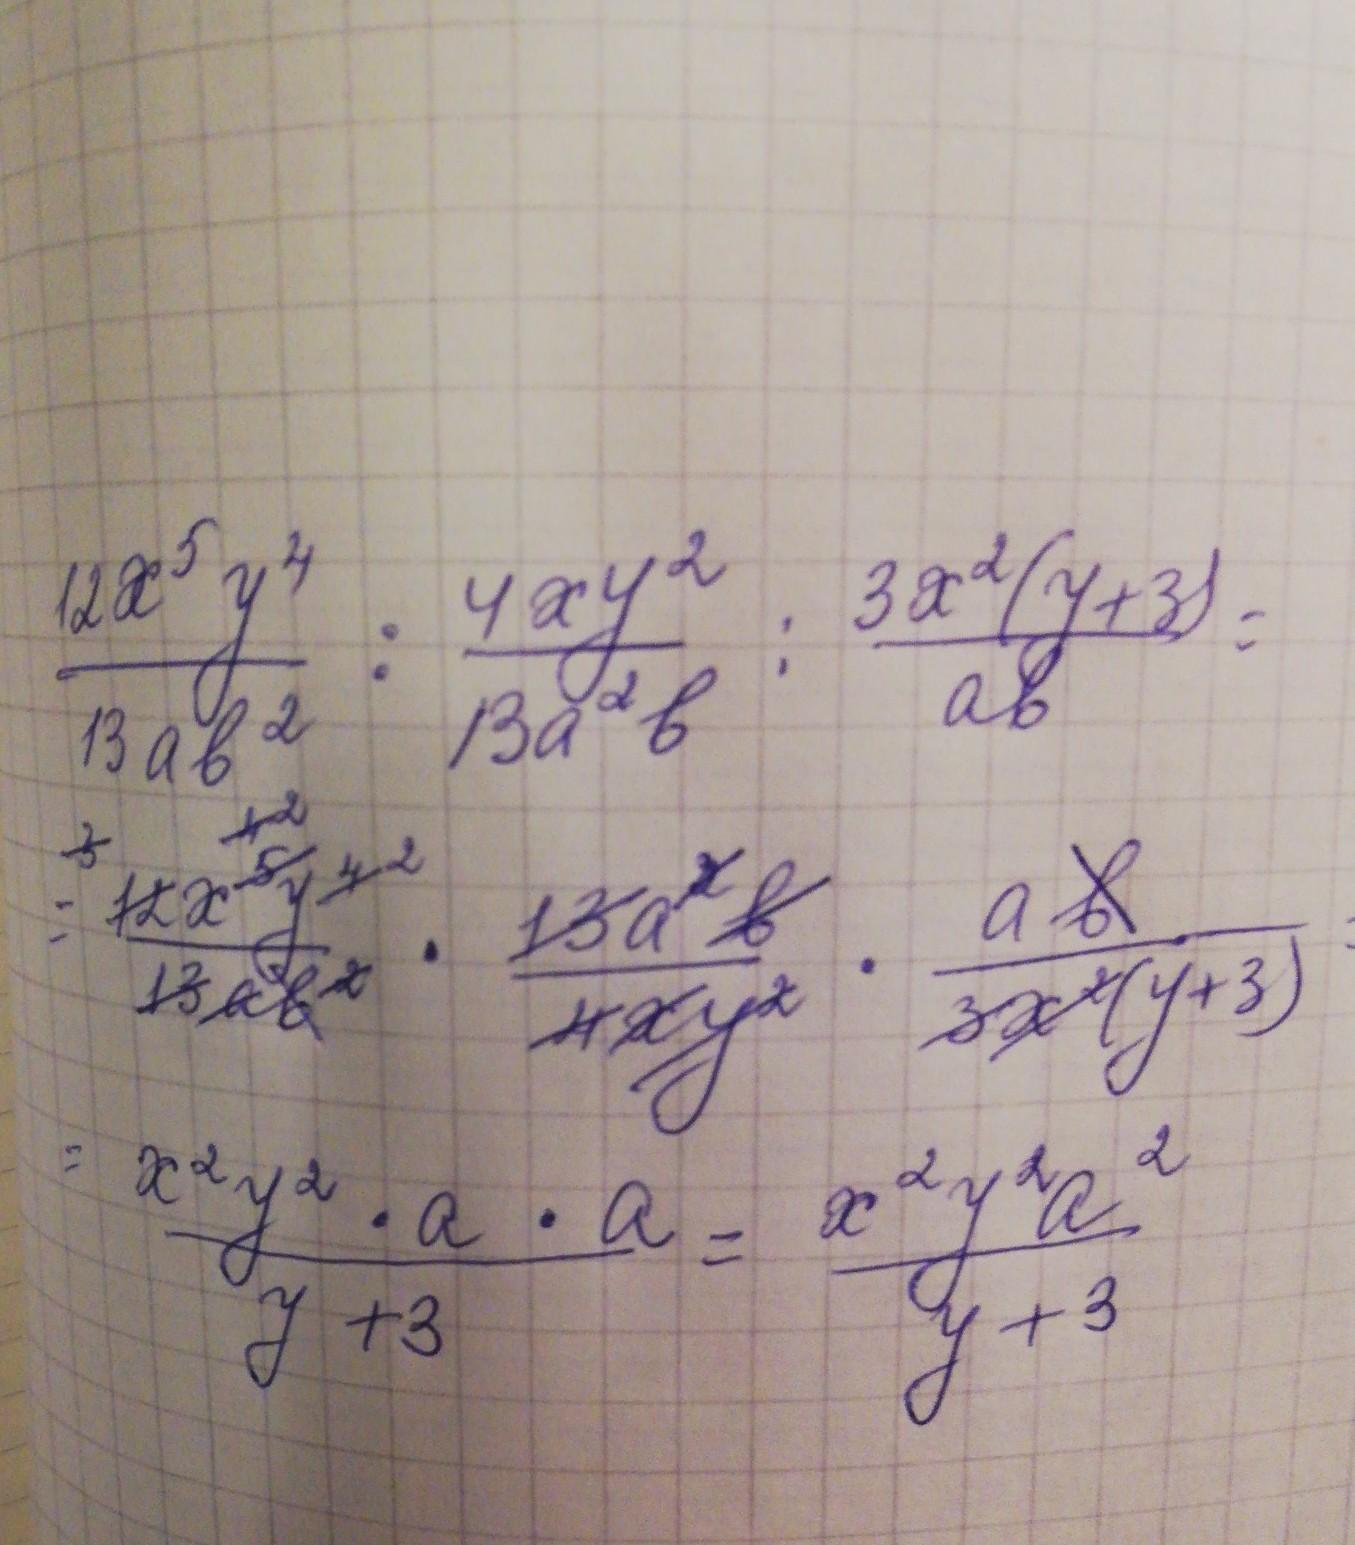 12x⁵y⁴/13ab² : 4xy²/13a²b : 3x²(y+3)/ab =
= 12x⁵y⁴/13ab² · 13a²b/4xy² · ab/3x²(y+3) =
= x²y² · a · a/y+3 = x²y²a²/y+3